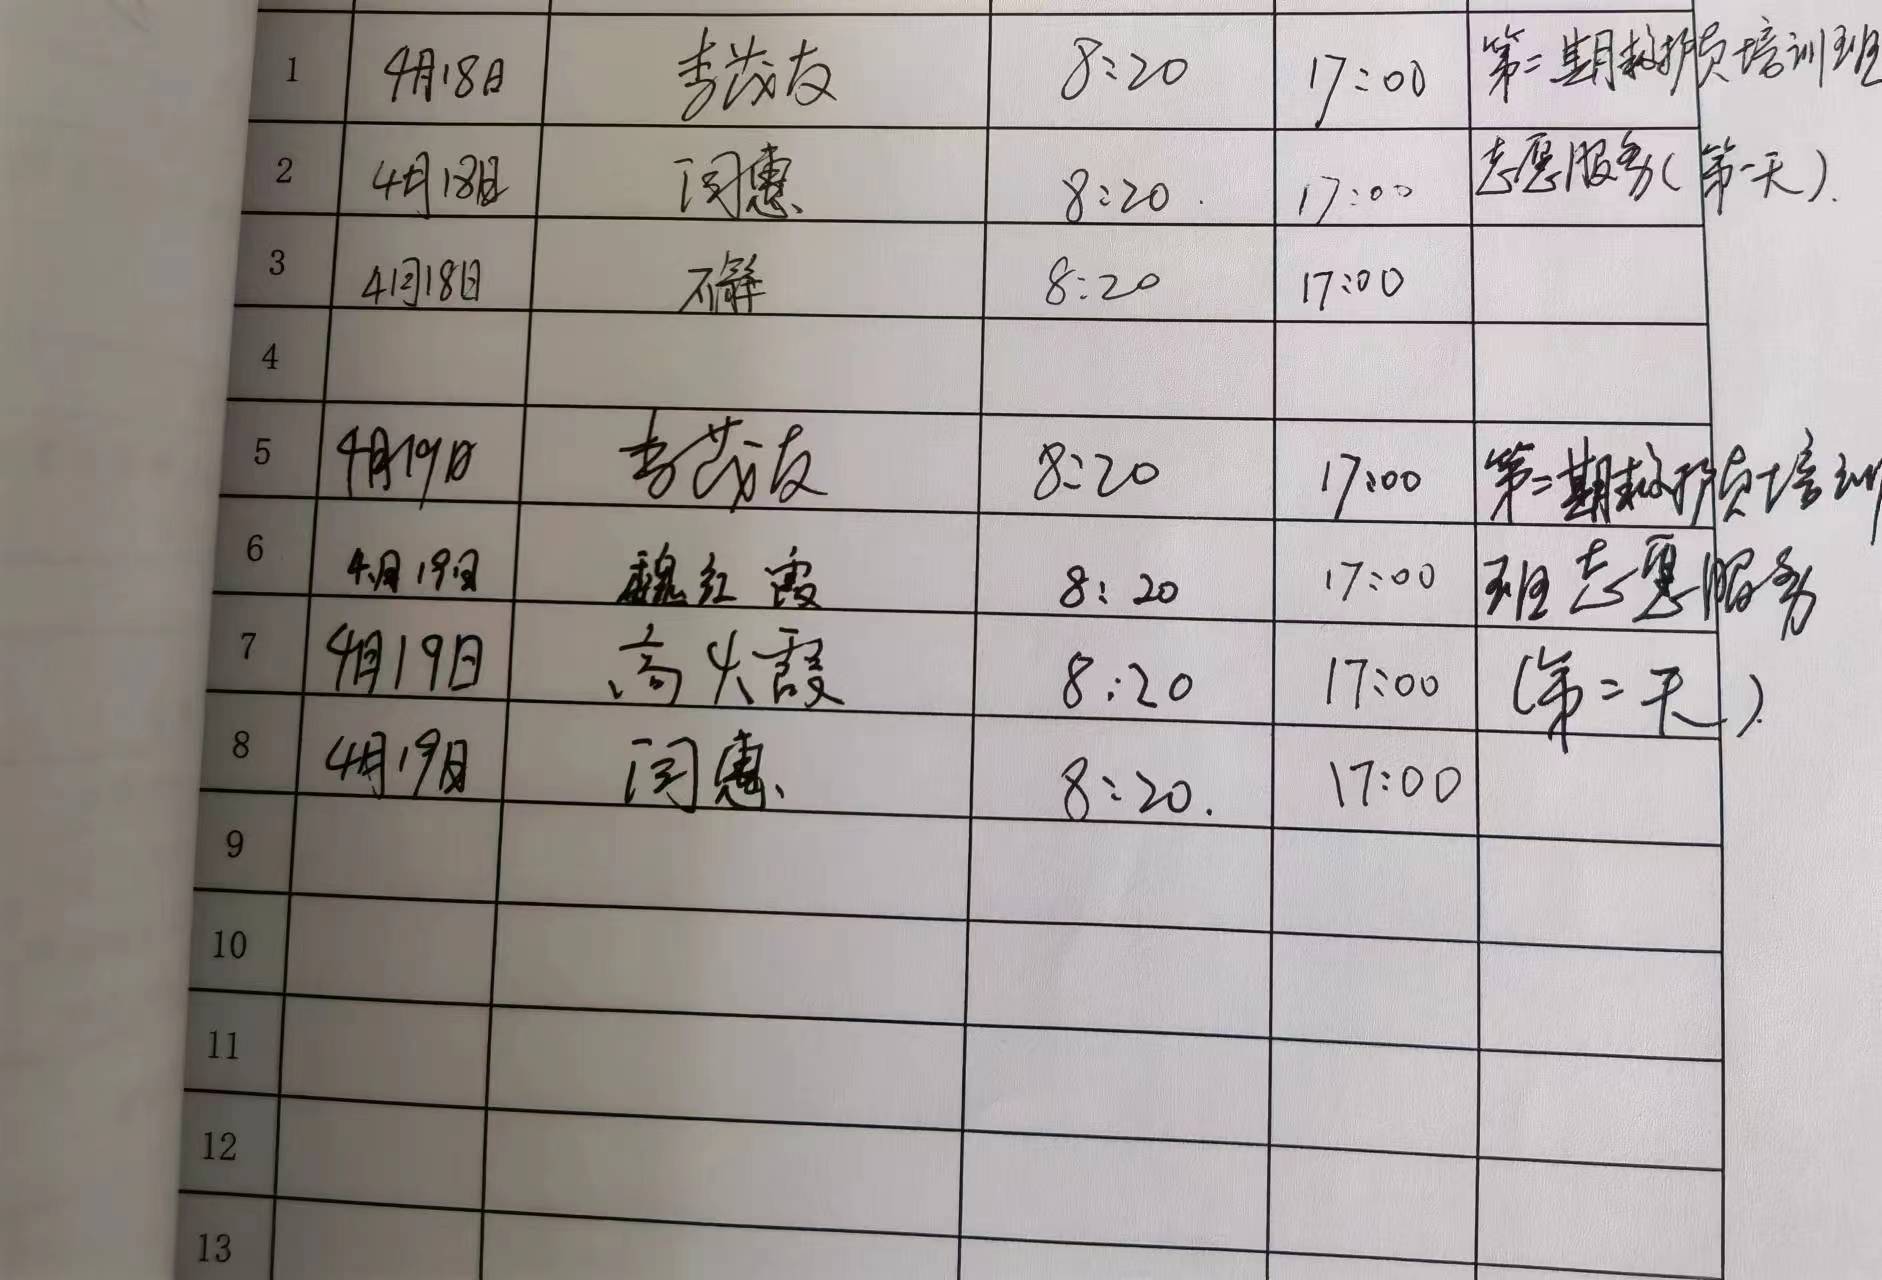 1 4月18日 李茂友 8:20 17:00 第二期救护员培训班
2 4月18日 闵惠 8:20 17:00 志愿服务(第一天).
3 4月18日 8:20 17:00
4
5 4月19日 李茂友 8:20 17:00 第二期救护员培训
6 4月19日 魏红霞 8:20 17:00 班志愿服务
7 4月19日 高火霞 8:20 17:00 (第二天).
8 4月19日 闵惠 8:20. 17:00
9
10
11
12
13